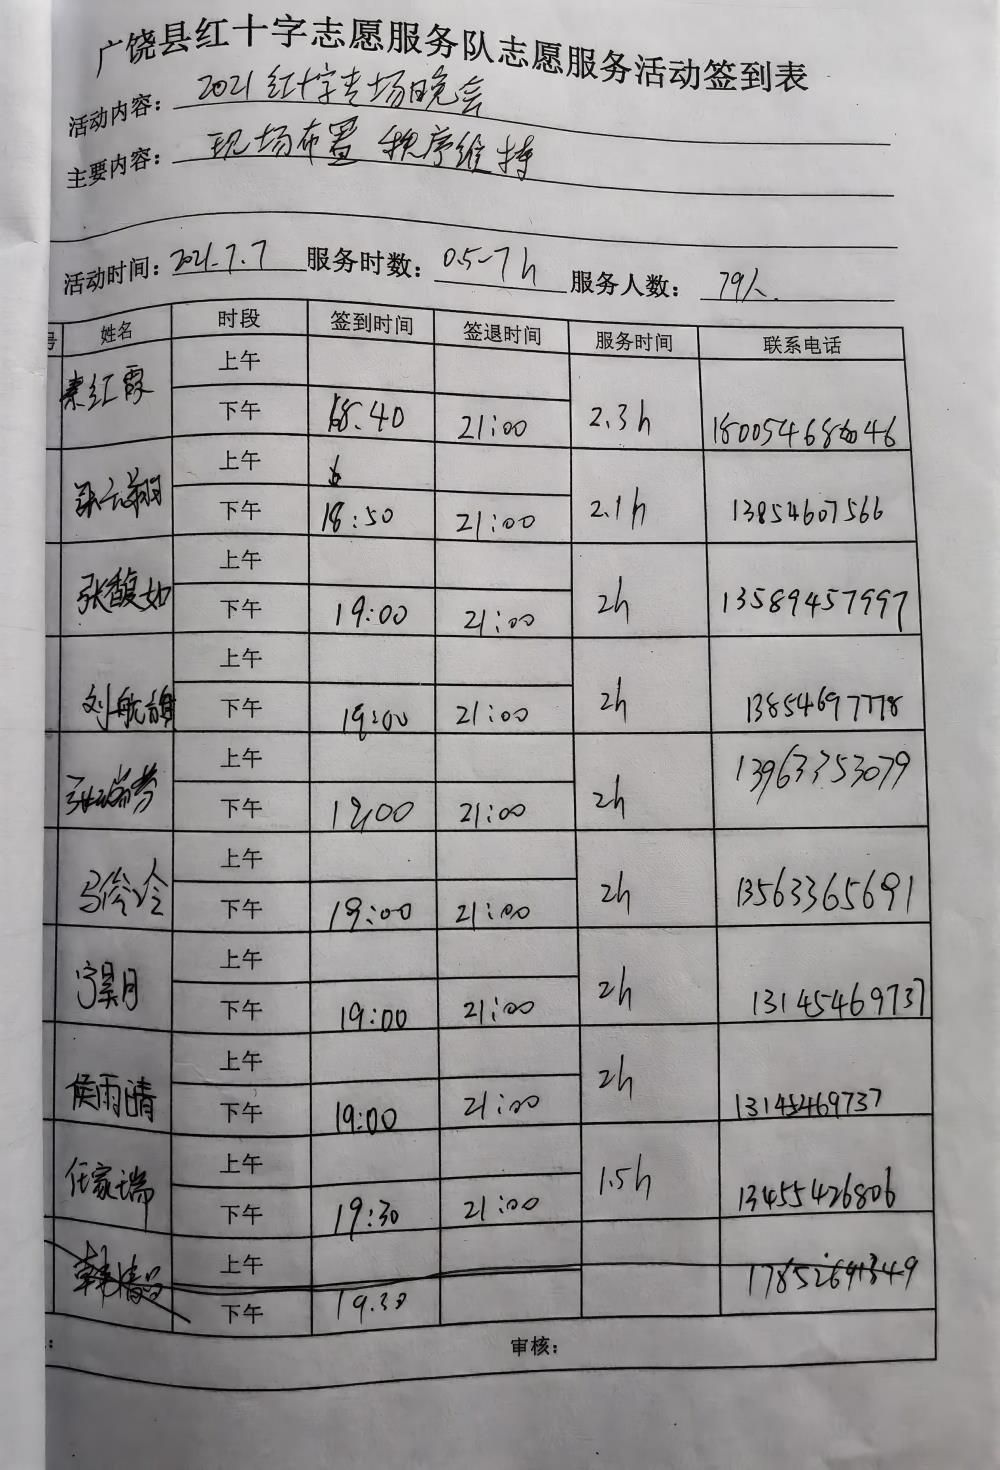 广饶县红十字志愿服务队志愿服务活动签到表
活动内容：2021红十字专场晚会
主要内容：现场布置 秩序维持
活动时间：2021.7.7 服务时数：0.5-7h 服务人数：79人.
号 姓名 时段 签到时间 签退时间 服务时间 联系电话
秦红霞 上午
下午 18:40 21:00 2.3h
上午
下午 18:50 21:00 2.1h 13854607566
张馥如 上午
下午 19:00 21:00 2h 13589457997
刘航旗 上午
下午 19:00 21:00 2h 13854697778
上午
下午 19:00 21:00 2h 13963353079
马伶冷 上午
下午 19:00 21:00 2h 13563365691
宁昊月 上午
下午 19:00 21:00 2h 13145469737
侯雨晴 上午
下午 19:00 21:00 2h 13145469737
任家瑞 上午
下午 19:30 21:00 1.5h 13455426806
上午
下午 19.30
审核：